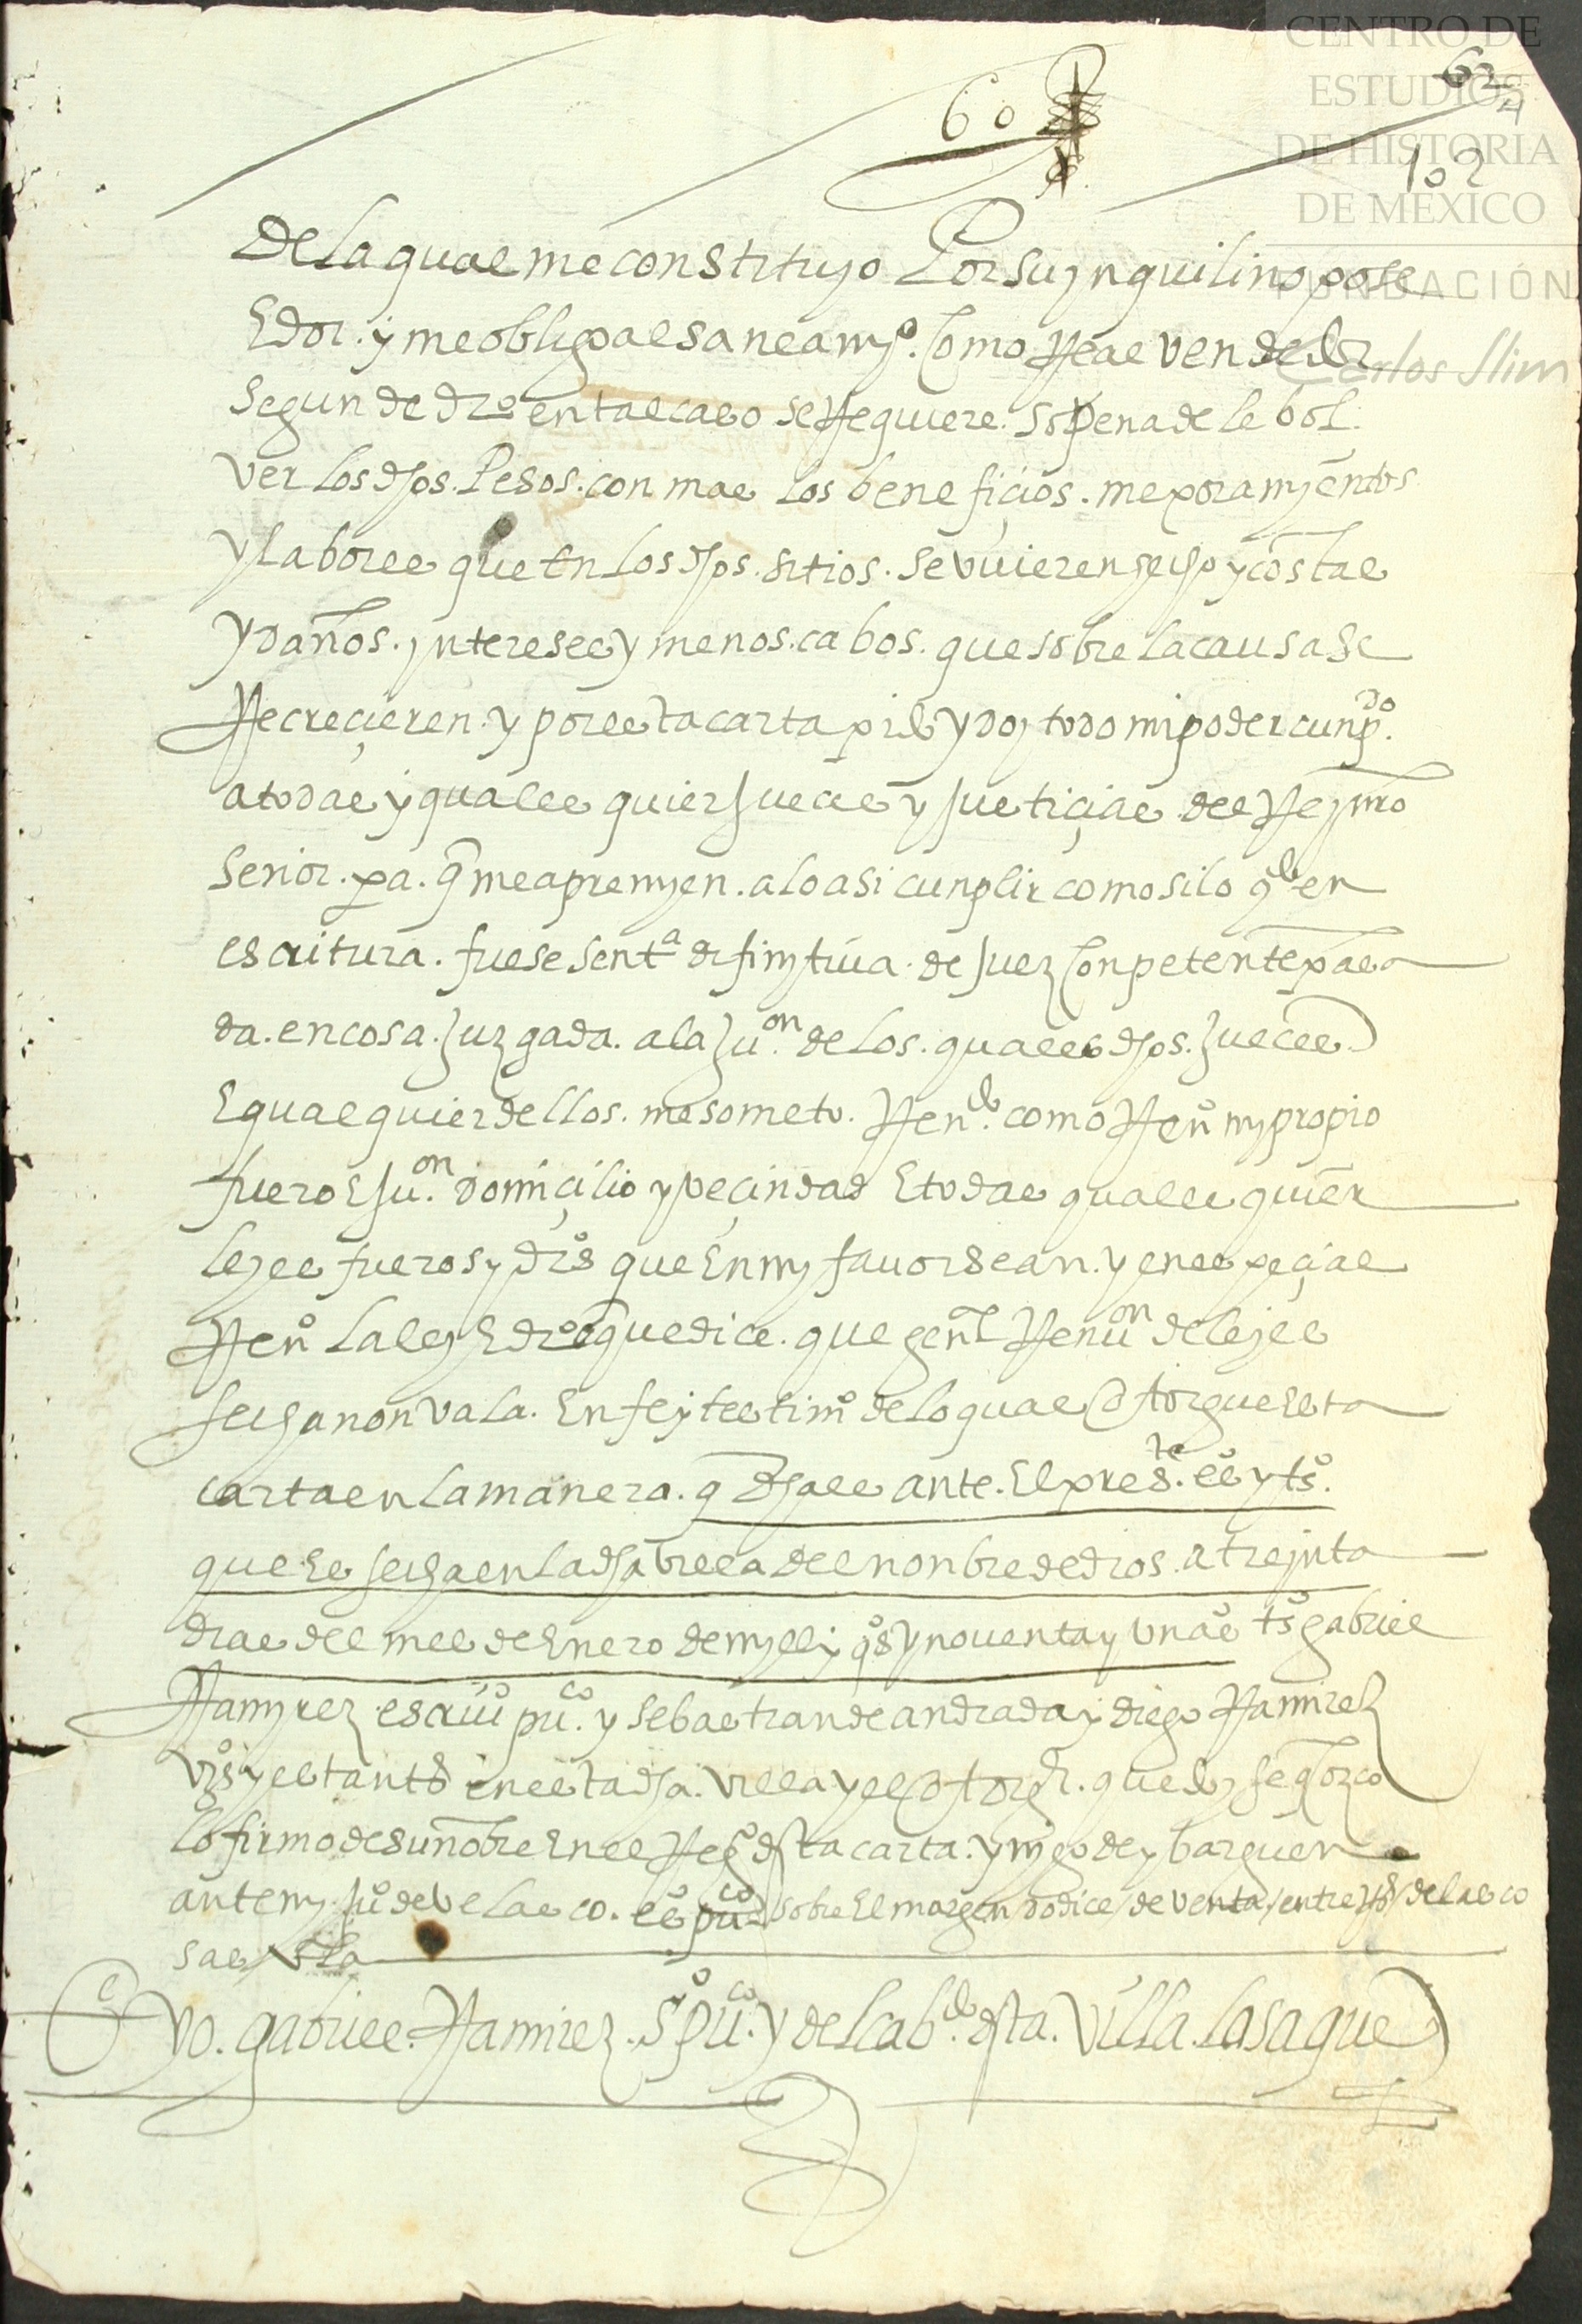 CENTRO DE
ESTUDIOS
DE HISTORIA
DE MÉXICO
FUNDACIÓN
Carlos Slim
60
62
102
De la qual me constituyo Por su ynquilino pose
Edor. y me obligo al saneamyo. Como Real vendedor
Segun de dro en tal caso se Requiere. so pena de le bol
ver los dhos. Pesos. con mas los benefiçios. mexoramyentos
y labores que En los dhos. sitios. se vuieren hecho y costas
y daños. yntereses y menos.cabos. que sobre la causa se
Recreçieren. y por esta carta pido y doy todo mi poder cunpdo.
a todas y quales quier Jueces y Justiçias del Rey nro
Señor. pa. q me apremyen. a lo asi cunplir como si lo qdo en
escritura. fuese senta difinytiua. de Juez Conpetente pasa
da. en cosa. Juzgada. a la Juon. de los. quales dhos. Jueces
E qual quier dellos. me someto. Rendo. como Reno my propio
fuero E Juon. domiçilio y veçindad E todas quales quier
leyes fueros y dros que En my fauor sean. y en espeçial
Reno la ley E dro que dice. que genl Renunon de leyes
fecha non vala. En fe y testimo de lo qual Otorgue Esta
carta en la manera. q dha es ante. El preste. esno y tso.
que Es fecha en la dha villa del nonbre de dios. a treynta
dias del mes de Enero de myll y qos y nouenta y un as tso gabriel
Ramyrez escriuo puco. y sebastian de andrada y diego Ramirez
vos y estantes en esta dha. villa y el Otorgte. que doy fe qonozco
lo firmo de su nobre En el Rego desta carta. y nygo de ybarguen
ante my Juo de Velasco. esno puco sobre El margen do dice / de venta / entre Rs / de las co
sas / Vala
E yo. gabriel. Ramirez. Sno puco. y del cabdo. desta. Villa. la saque